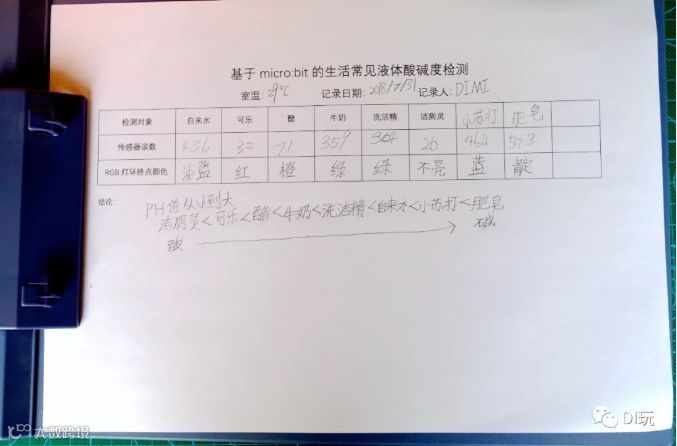 基于 micro:bit 的生活常见液体酸碱度检测
室温: 29℃ 记录日期: 2018/7/31 记录人: DIMI
检测对象 自来水 可乐 醋 牛奶 洗洁精 洁厕灵 小苏打 肥皂
传感器读数 436 32 71 359 364 26 464 573
RGB 灯环终点颜色 淡蓝 红 橙 绿 绿 不亮 蓝 靛
结论: PH值从小到大
洁厕灵<可乐<醋<牛奶<洗洁精<自来水<小苏打<肥皂
酸 碱
大数跨境
DI玩